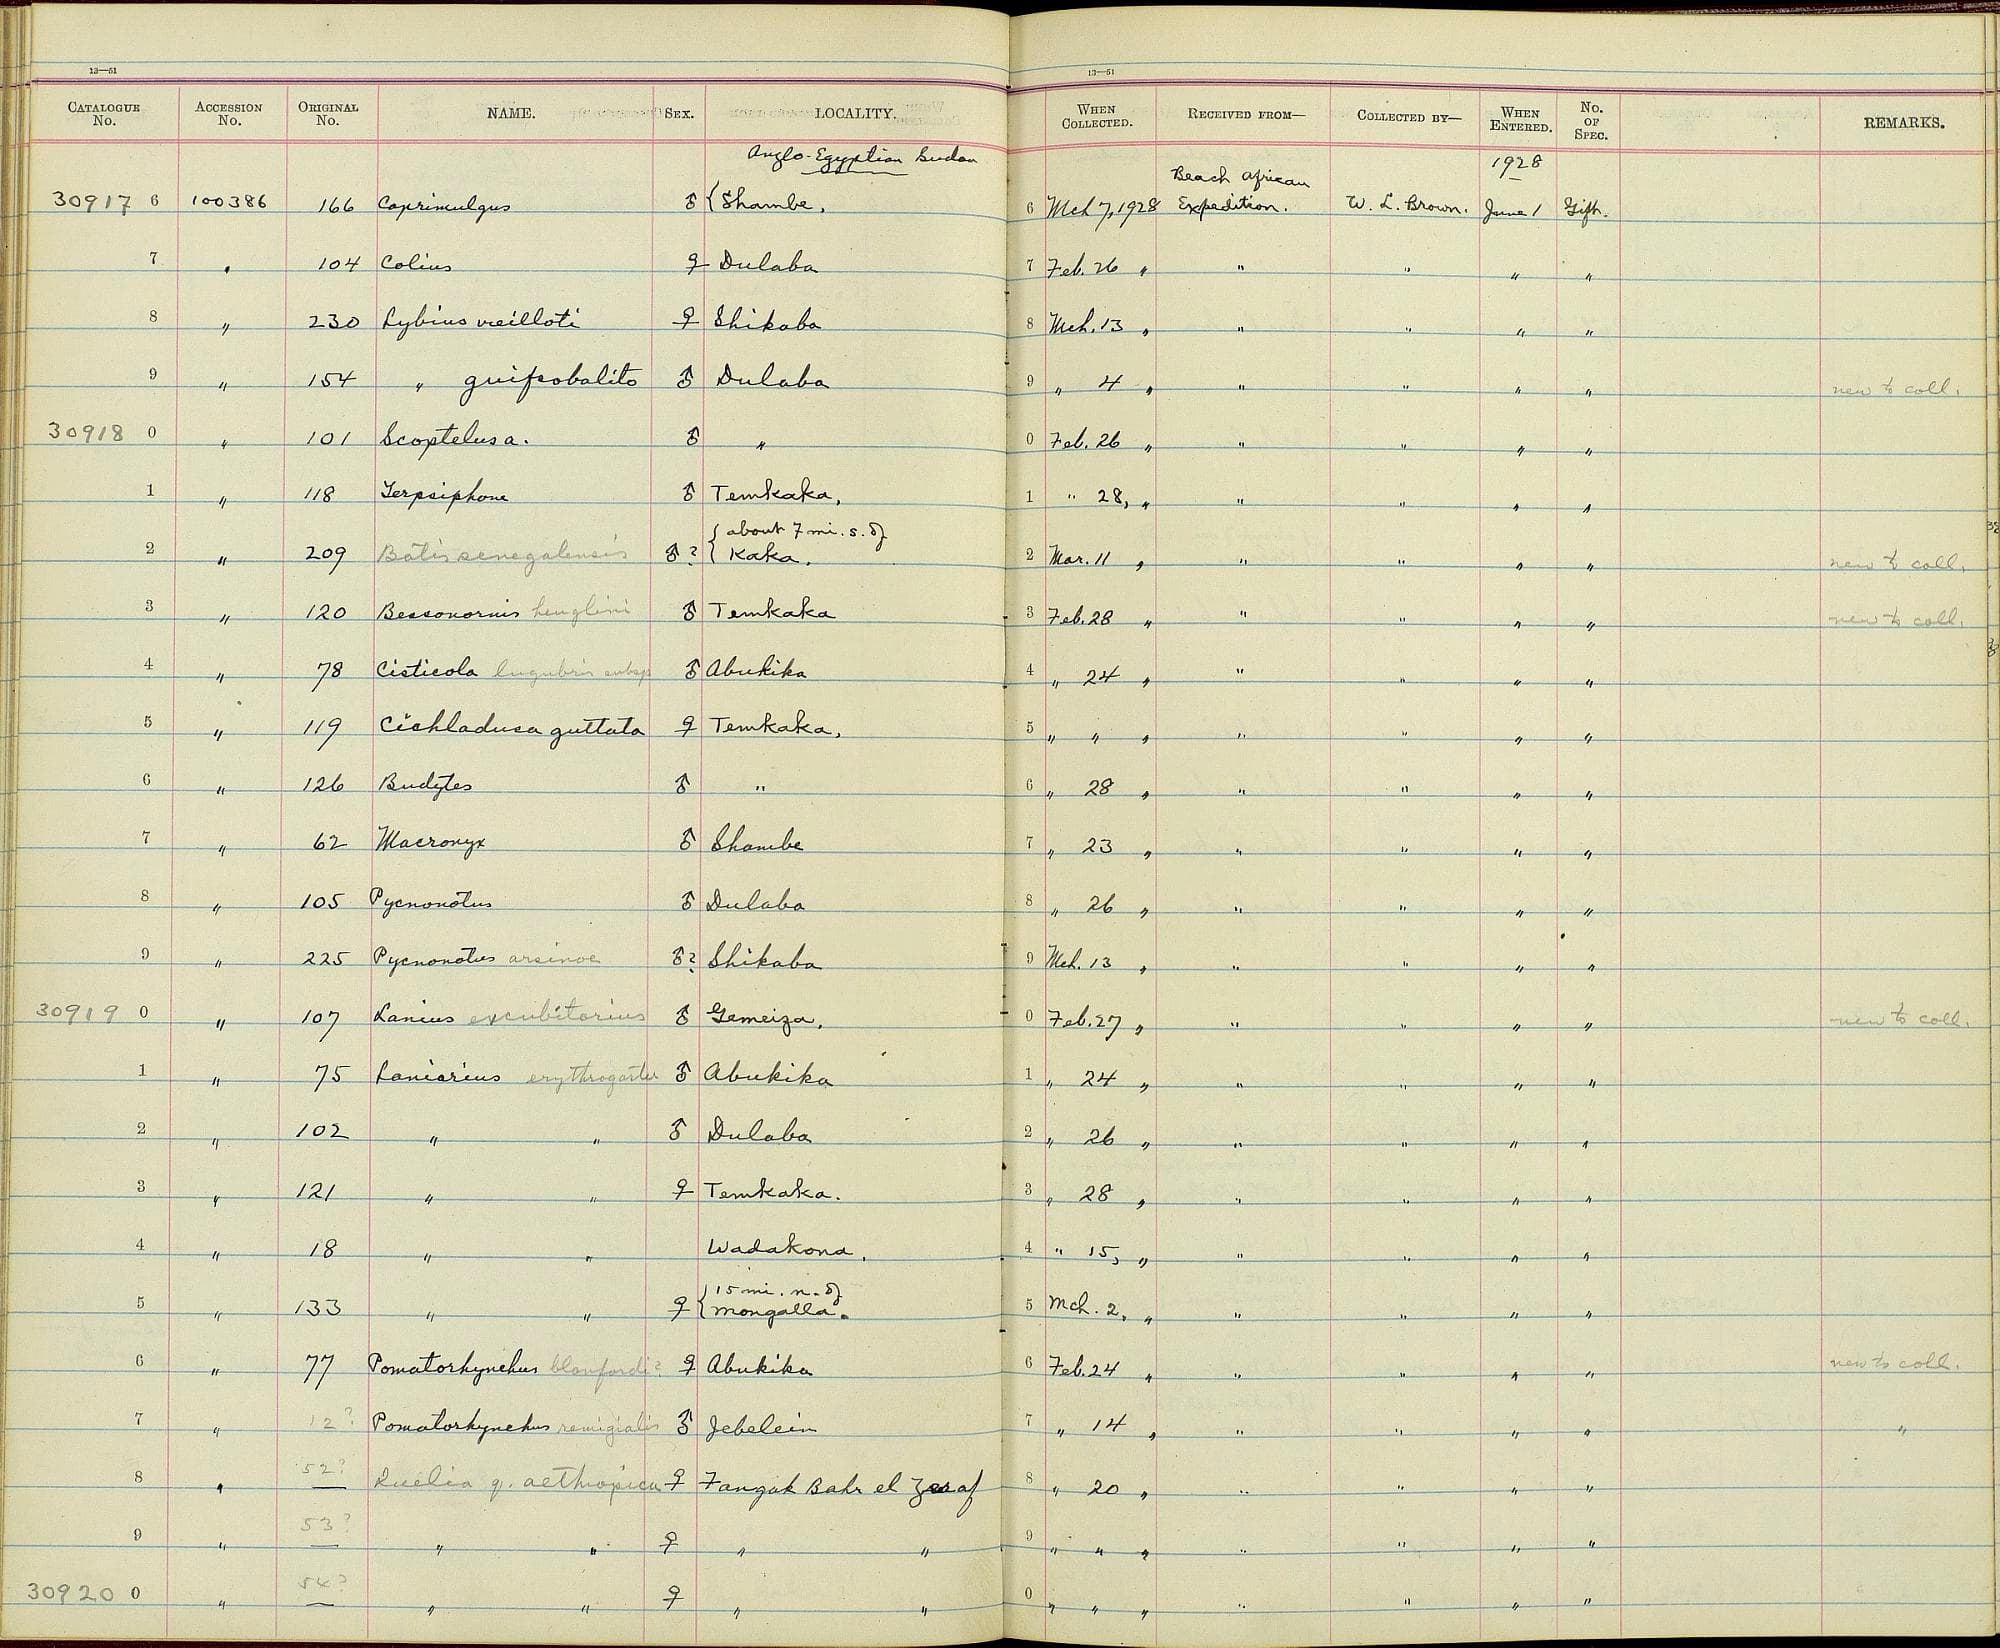 13—51
13—51
CATALOGUE No. ACCESSION No. ORIGINAL No. NAME. SEX. LOCALITY. WHEN COLLECTED. RECEIVED FROM— COLLECTED BY— WHEN ENTERED. No. OF SPEC. REMARKS.
Anglo-Egyptian Sudan 1928
30917 6 100386 166 Caprimulgus ♂ {Shambe, 6 Mch 7, 1928 Beach African Expedition. W. L. Brown. June 1 Gift.
7 " 104 Colius ♀ Dulaba 7 Feb. 26 " " " " "
8 " 230 Lybius vieilloti ♀ Shikaba 8 Mch. 13 " " " " "
9 " 154 " guifsobalito ♂ Dulaba 9 " 4 " " " " " new to coll.
30918 0 " 101 Scoptelus a. ♂ " 0 Feb. 26 " " " " "
1 " 118 Terpsiphone ♂ Temkaka, 1 " 28, " " " " "
2 " 209 Batis senegalensis ♂? {about 7 mi. s. of Kaka. 2 Mar. 11 " " " " " new to coll.
3 " 120 Bessonornis heuglini ♂ Temkaka 3 Feb. 28 " " " " " new to coll.
4 " 78 Cisticola lugubris subsp ♂ Abukika 4 " 24 " " " " "
5 " 119 Cichladusa guttata ♀ Temkaka, 5 " " " " " " "
6 " 126 Budytes ♂ " 6 " 28 " " " " "
7 " 62 Macronyx ♂ Shambe 7 " 23 " " " " "
8 " 105 Pycnonotus ♂ Dulaba 8 " 26 " " " " "
9 " 225 Pycnonotus arsinoe ♂? Shikaba 9 Mch. 13 " " " " "
30919 0 " 107 Lanius excubitorius ♂ Gemeiza, 0 Feb. 27 " " " " " new to coll.
1 " 75 Laniarius erythrogaster ♂ Abukika 1 " 24 " " " " "
2 " 102 " " ♂ Dulaba 2 " 26 " " " " "
3 " 121 " " ♀ Temkaka. 3 " 28 " " " " "
4 " 18 " " Wadakona, 4 " 15, " " " " "
5 " 133 " " ♀ {15 mi. n. of Mongalla. 5 Mch. 2, " " " " "
6 " 77 Pomatorhynchus blanfordi? ♀ Abukika 6 Feb. 24 " " " " " new to coll.
7 " 12? Pomatorhynchus remigialis ♂ Jebelein 7 " 14 " " " " " "
8 " 52? Quelia q. aethiopica ♀ Fangak Bahr el Zeraf 8 " 20 " " " " "
9 " 53? " " ♀ " " 9 " " " " " " "
30920 0 " 54? " " ♀ " " 0 " " " " " " "